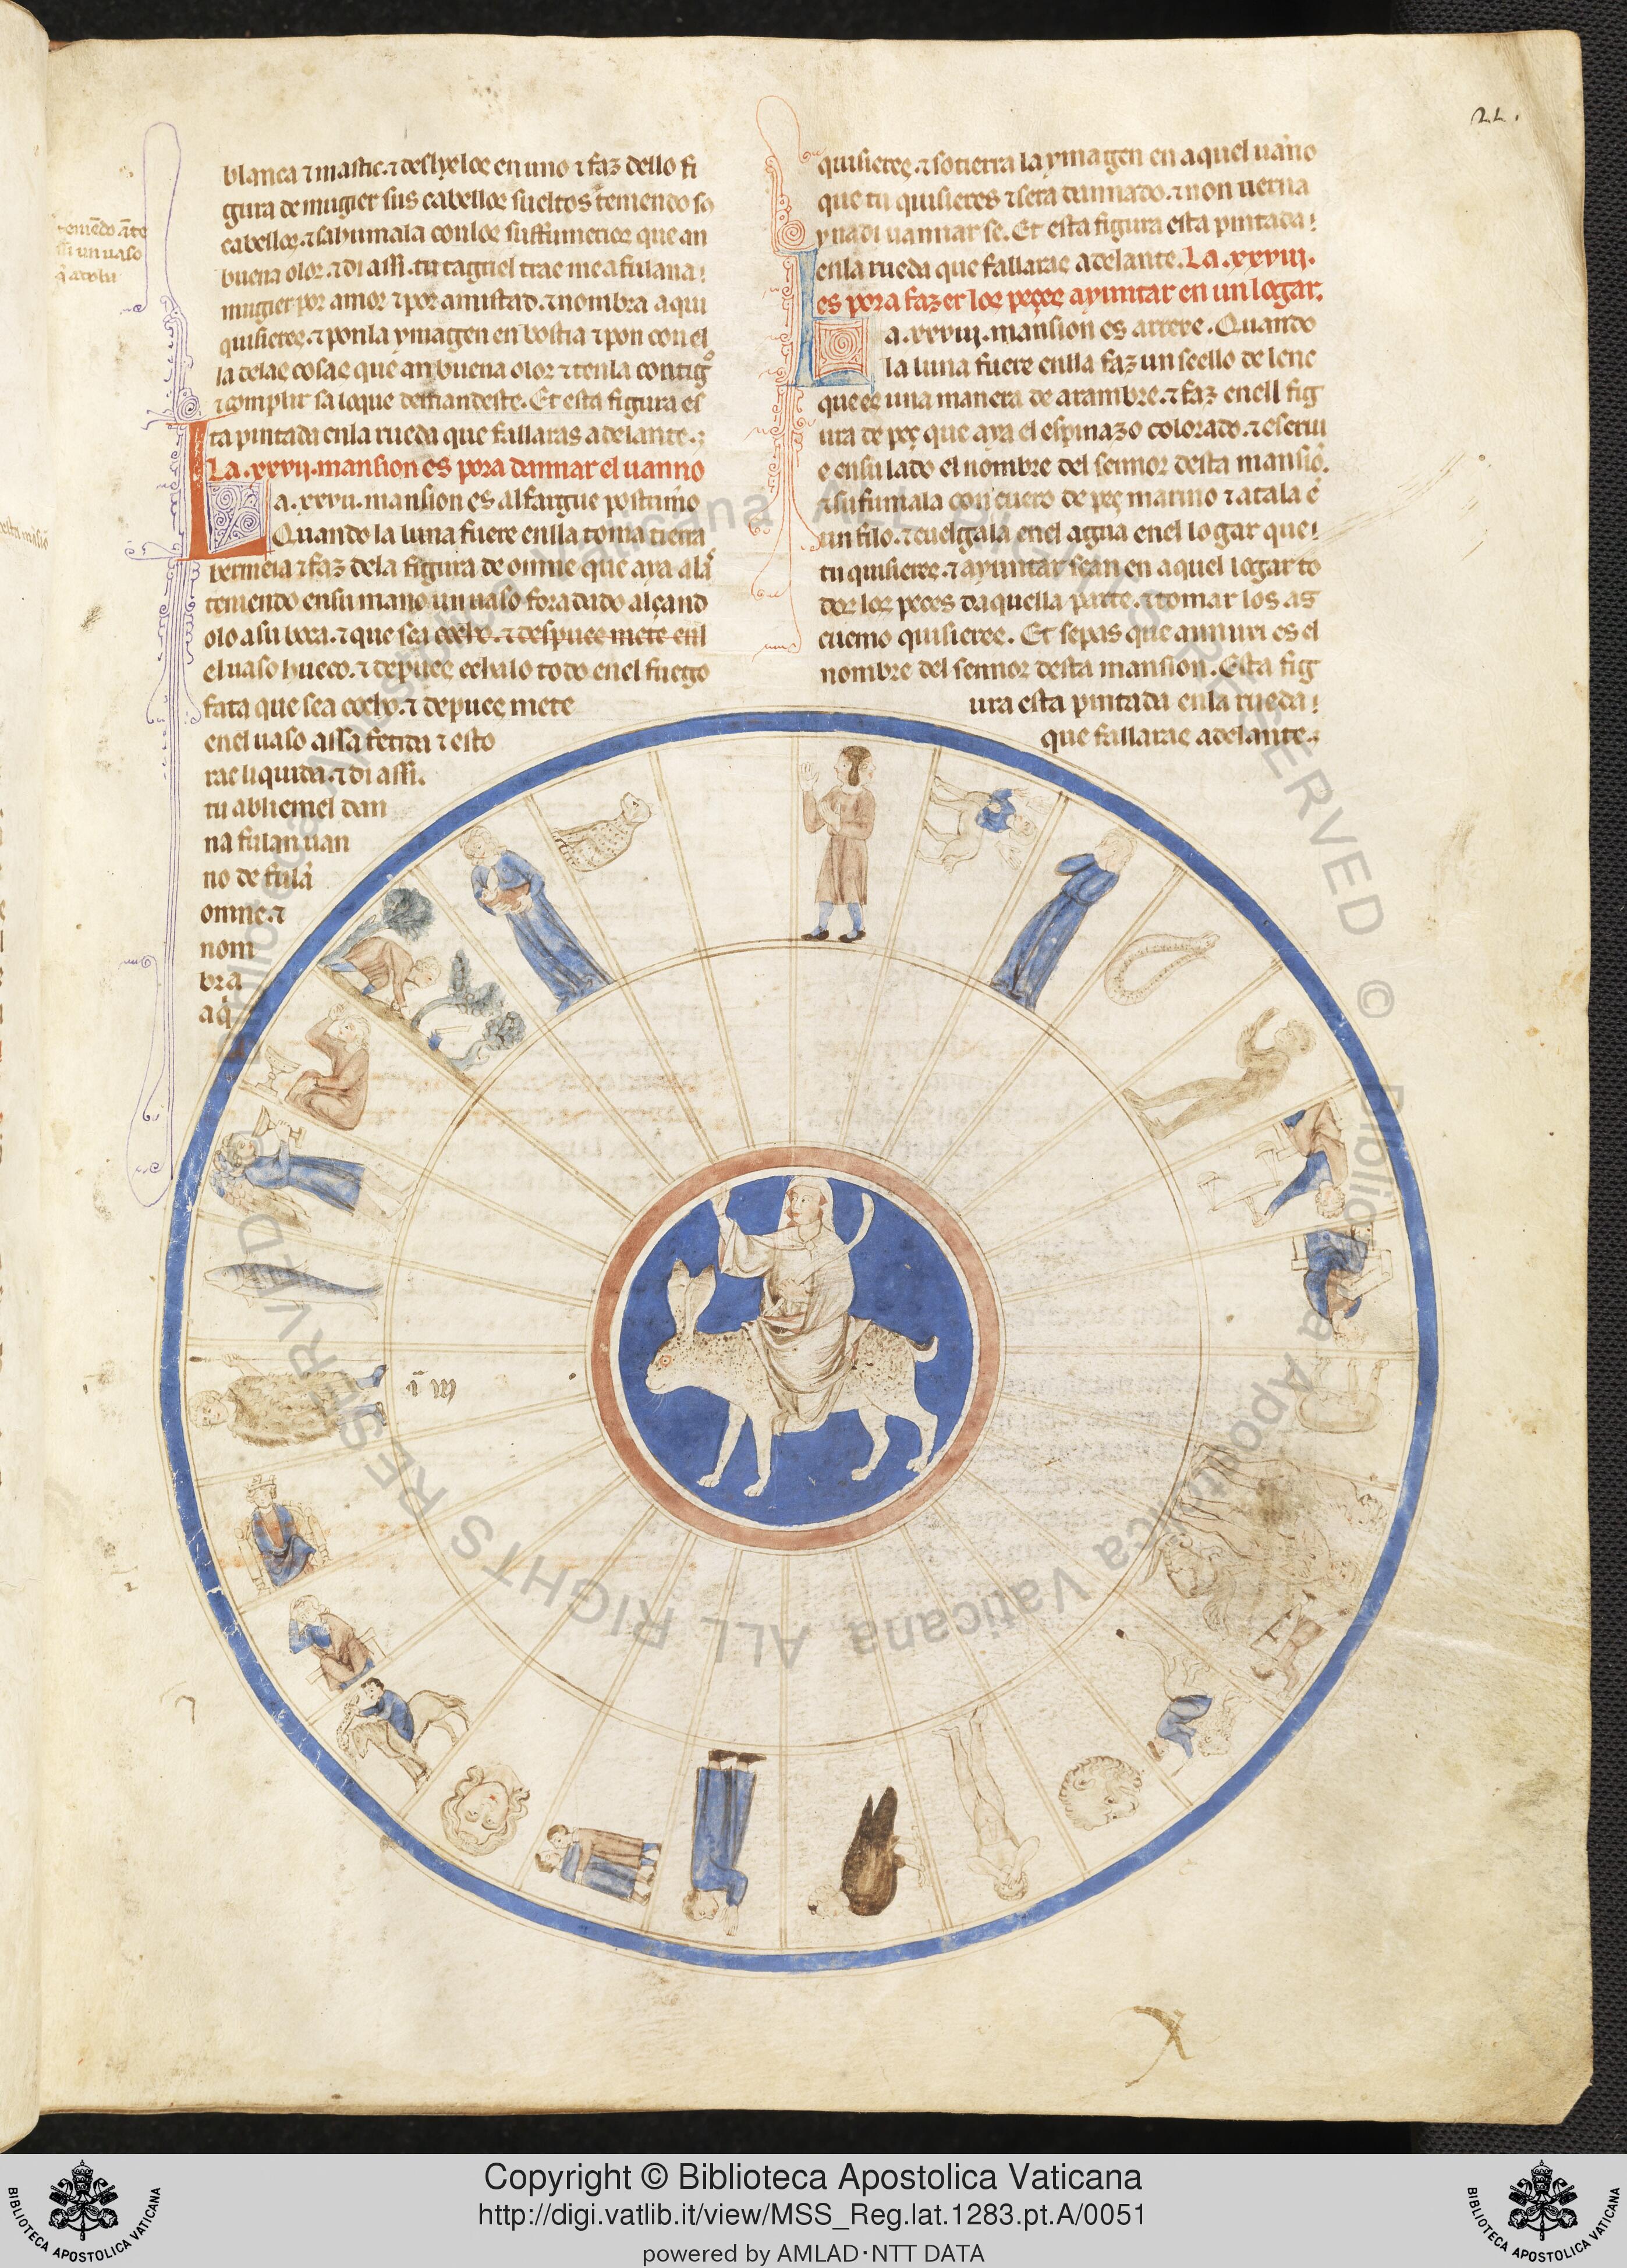 22.
blanca ⁊ mastic. ⁊ deslyelos en uno ⁊ faz dello fi
gura de mugier sus cabellos sueltos teniendo so
cabellos. ⁊ sahumala con los suffumerios que an
buena olor. ⁊ di assi. tu tagriel trae me a fulana
mugier por amor ⁊ por amistad. ⁊ nombra a qui
quisieres. ⁊ pon la ymagen en bostia ⁊ pon con el
la delas cosas que an buena olor ⁊ tenla contigo
⁊ complir sa lo que demandeste. Et esta figura es
ta pintada en la rueda que fallaras adelante.
La .xxvij. mansion es pora dannar el uanno
La .xxvij. mansion es alfargue postrimo
Quando la luna fuere en lla toma tierra
bermeia ⁊ faz della figura de omne que aya alas
teniendo en su mano un uaso foradado alçand
olo a su boca. ⁊ que sea cocho. ⁊ despues mete enl
el uaso hueco. ⁊ depues echalo todo en el fuego
fata que sea cocho. ⁊ depues mete
en el uaso assa fetida ⁊ esto
rac liquida. ⁊ di assi.
tu abliemel dan
na fulan uan
no de fulã
omne. ⁊
nom
bra
a q̃
teniẽdo ãte
ssi un uaso
quisieres. ⁊ sotierra la ymagen en aquel uãno
que tu quisieres ⁊ sera dannado. ⁊ non uerna
y nadi uannar se. Et esta figura esta pintada
en la rueda que fallaras adelante. La .xxviij.
es pora fazer los peçes ayuntar en un logar.
La .xxviij. mansion es arrexe. Quando
la luna fuere en lla faz un seello de lene
que es una manera de arambre. ⁊ faz en ell fig
ura de peç que aya el espinazo colorado. ⁊ escriu
e en su lado el nombre del sennor desta mansiõ.
⁊ sufumala con cuero de peç marino ⁊ atala ẽ
un filo. ⁊ cuelgala en el agua en el logar que
tu quisieres. ⁊ ayuntar sean en aquel logar to
dos los peces daquella parte. ⁊ tomar los as
cuemo quisieres. Et sepas que annuxi es el
nombre del sennor desta mansion. Esta fig
ura esta pintada en la rueda
que fallaras adelante.
Copyright © Biblioteca Apostolica Vaticana
http://digi.vatlib.it/view/MSS_Reg.lat.1283.pt.A/0051
powered by AMLAD·NTT DATA
BIBLIOTECA APOSTOLICA VATICANA
BIBLIOTECA APOSTOLICA VATICANA
© Biblioteca Apostolica Vaticana ALL RIGHTS RESERVED © Biblioteca Apostolica Vaticana ALL RIGHTS RESERVED